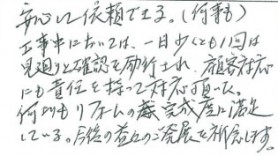 安心して依頼できる。(何事も)
工事中においては、一日少くとも1回は
見廻りと確認を励行され、顧客対応
にも責任を持って対応頂いた。
何よりもリフォームの完成度に満足
している。今後の益々のご発展を祈念します。